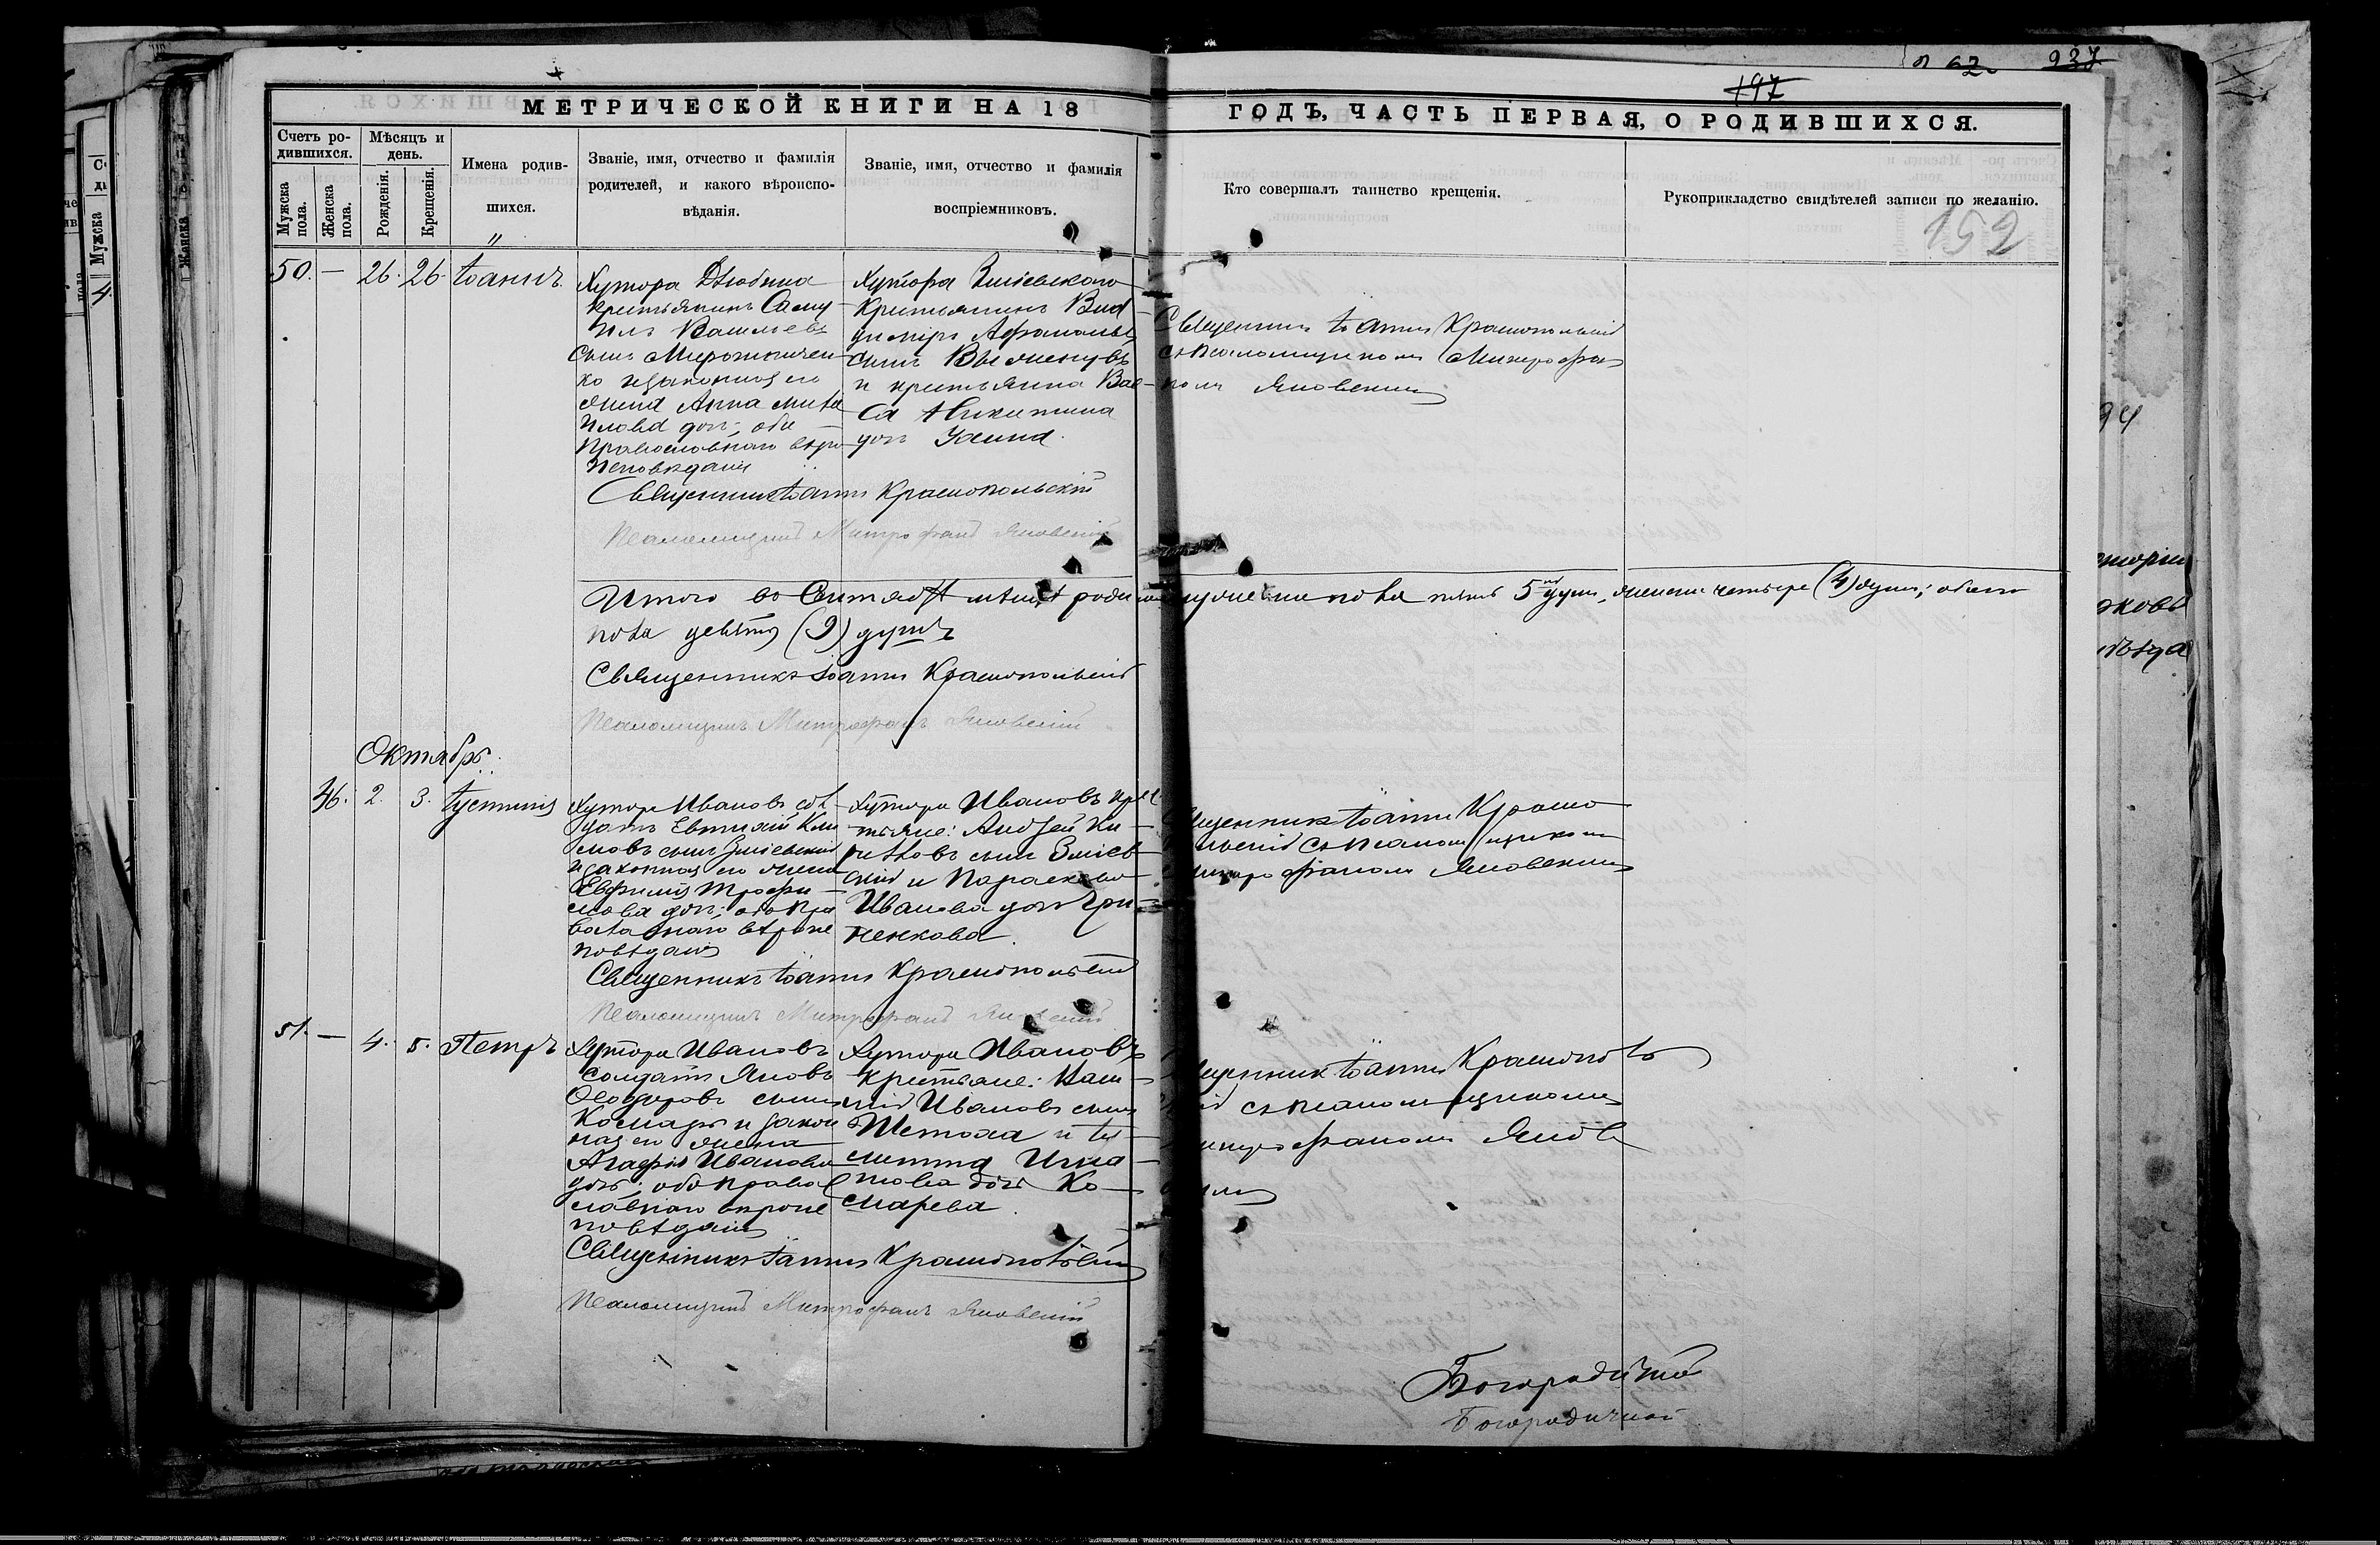 197
п 62 237
МЕТРИЧЕСКОЙ КНИГИ НА 18
ГОДЪ, ЧАСТЬ ПЕРВАЯ, О РОДИВШИХСЯ.
Счетъ ро-
дившихся.
Мужска
пола.
Женска
пола.
Мѣсяцъ и
день.
Рожденія.
Крещенія.
Имена родив-
шихся.
Званіе, имя, отчество и фамилія
родителей, и какого вѣроиспо-
вѣданія.
Званіе, имя, отчество и фамилія
воспріемниковъ.
Кто совершалъ таинство крещенія.
Рукоприкладство свидѣтелей записи по желанію.
152
50. — 26. 26. Іоаннъ.
Хутора
крестьянинъ Саму
илъ Васильевъ
сынъ Мирошничен
ко и законная его
жена Анна Миха
илова доч; оба
православнаго вѣро
исповѣданія
Хутора Зміевскаго
крестьянинъ Вла
диміръ
сынъ
и крестьянка Вас
са Никитина
доч
Священникъ Іоаннъ Краснопольскій
съ псаломщикомъ Митрофа
номъ Яновскимъ
Священникъ Іоаннъ Краснопольскій
Псаломщикъ Митрофанъ Яновскій
Итого въ Сентябрѣ мѣсяцѣ родилось мужеска пола пять 5 душъ, женска четыре (4) души; обоего
пола девять (9) душъ
Священникъ Іоаннъ Краснопольскій
Псаломщикъ Митрофанъ Яновскій
Октябрь.
46. 2. 3. Іустинія
Хутора Ивановъ сол
датъ Евтихій Кли
мовъ сынъ Зміевскій
и законная его жена
Евфимія Трофи
мова доч; оба пра
вославнаго вѣроис
повѣданія
Хутора Ивановъ крес
тьяне: Андрей Ки
рилловъ сынъ Зміев
скій и Параскева
Иванова доч Гри
ненкова.
Священникъ Іоаннъ Красно
польскій съ псаломщикомъ
Митрофаномъ Яновскимъ
Священникъ Іоаннъ Краснопольскій
Псаломщикъ Митрофанъ Яновскій
51. — 4. 5. Петръ
Хутора Ивановъ
солдатъ Яковъ
Ѳеодоровъ сынъ
Комаръ и закон
ная его жена
Агафія Иванова
доч; оба право
славнаго вѣроис
повѣданія
Хутора Ивановъ
крестьяне: Васи
лій Ивановъ сынъ
Шетоха и
Игна
това доч Ко
марева.
Священникъ Іоаннъ Краснополь
скій съ псаломщикомъ
Митрофаномъ Яновс
кимъ
Священникъ Іоаннъ Краснопольскій
Псаломщикъ Митрофанъ Яновскій
Богородичной
Богородичной